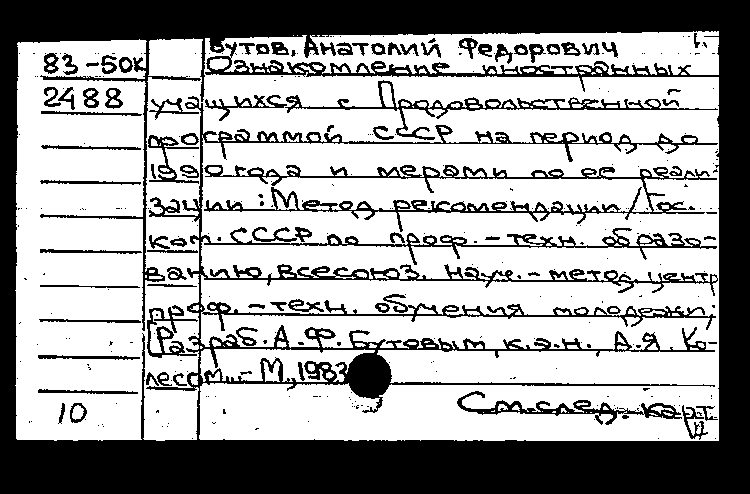 Бутов, Анатолий Федорович
83-50к Ознакомление иностранных
2488 учащихся с Продовольственной
программой СССР на период до
1990 года и мерами по ее реали-
зации: Метод. рекомендации / Гос.
ком. СССР по проф.-техн. образо-
ванию, Всесоюз. науч.-метод. центр
проф.-техн. обучения молодежи;
[Разраб. А.Ф. Бутовым, к.э.н., А.Я. Ко-
лесом. - М., 1983
10 См. след. карт